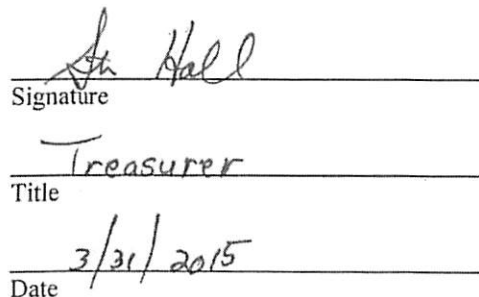 Hall
Signature
Treasurer
Title
3/31/2015
Date